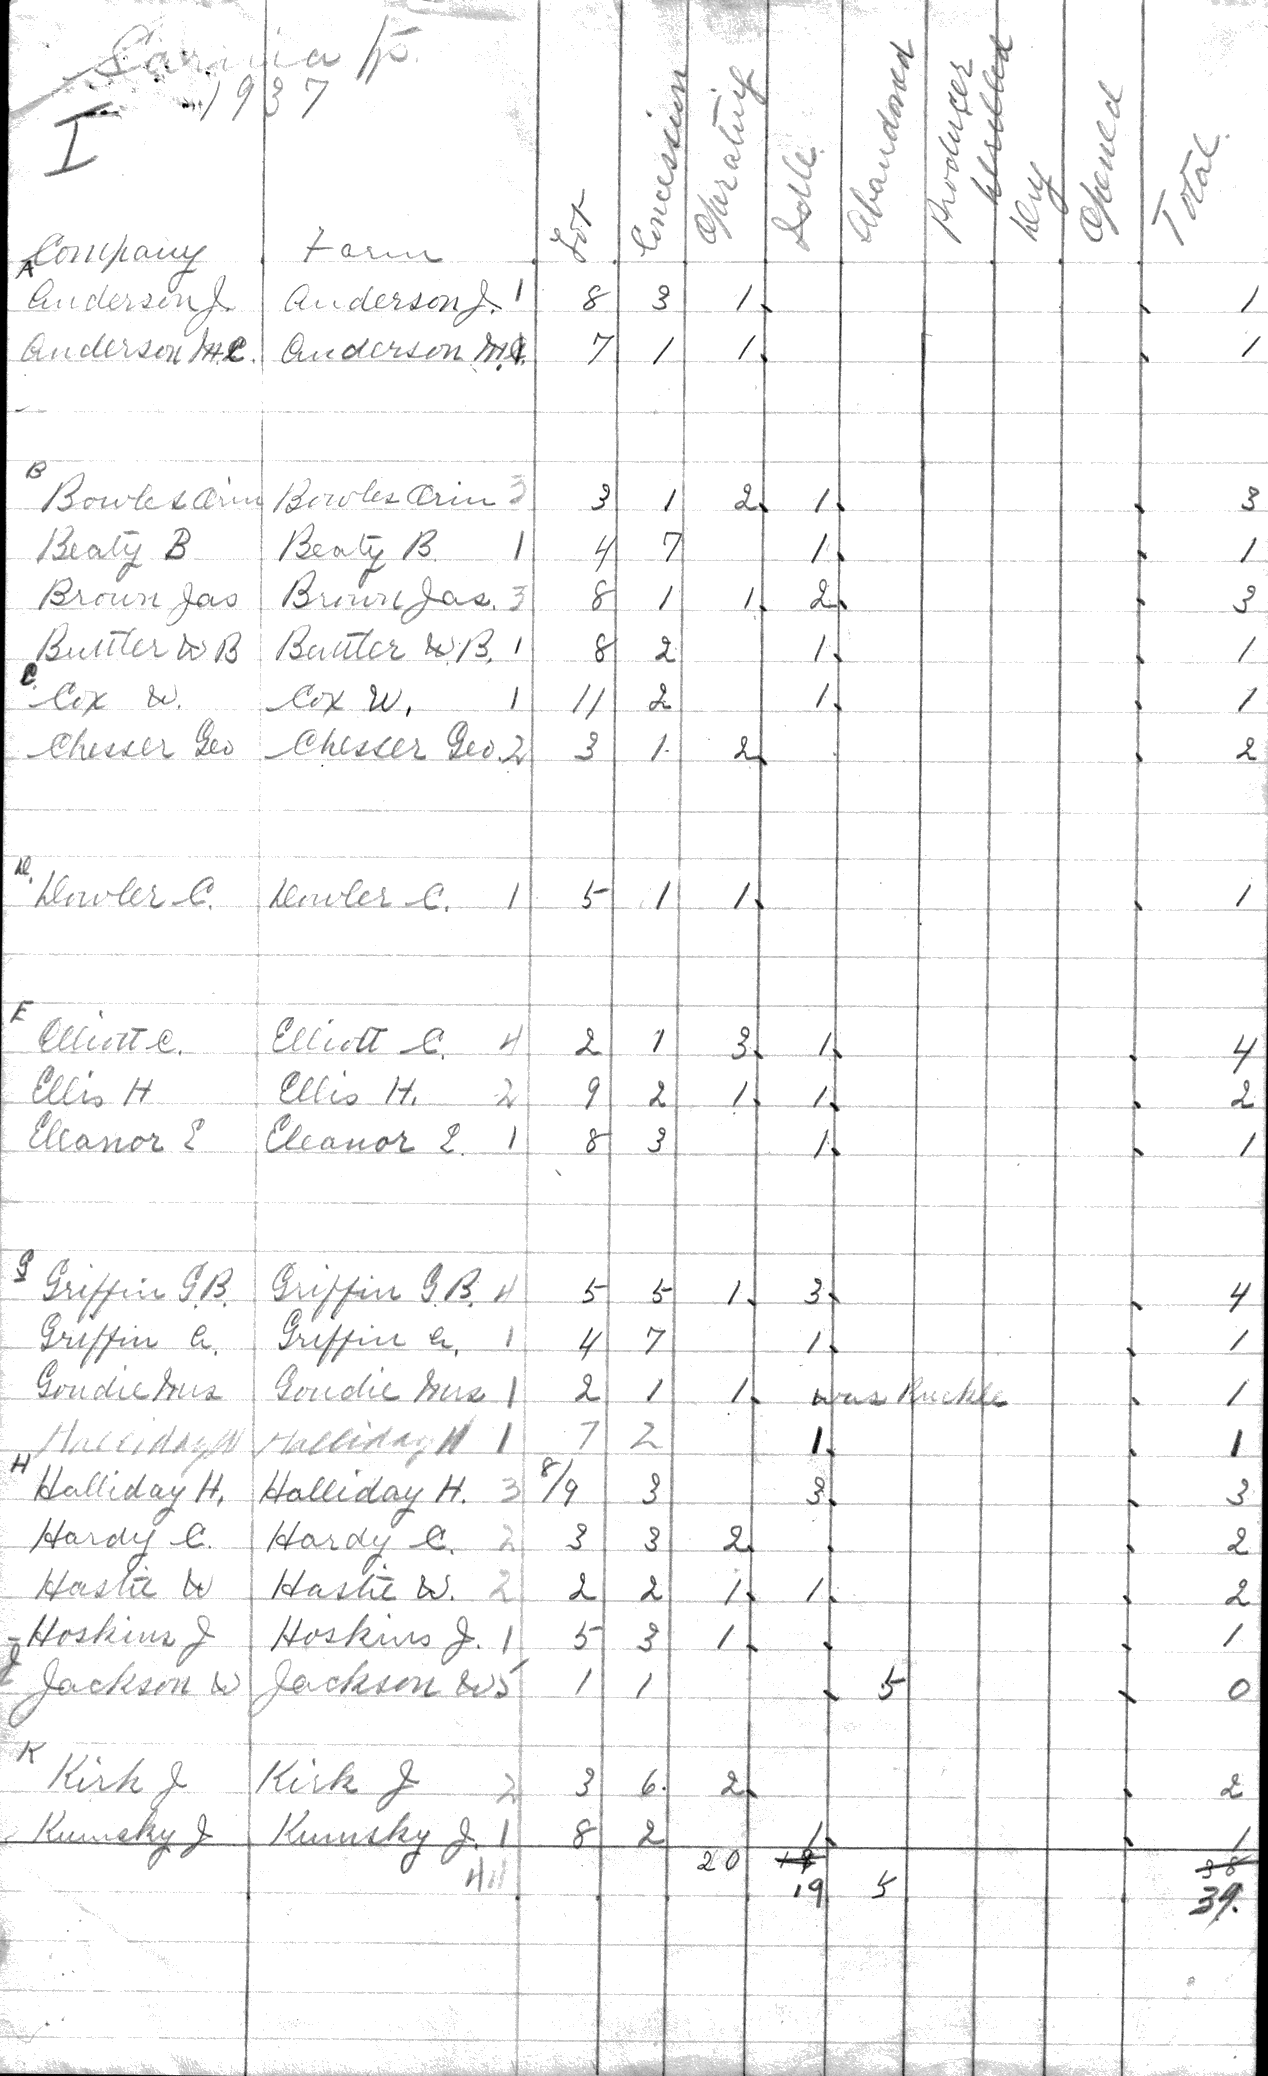 Sarnia Tp.
1937
I
Company Farm Lot Concession Operating Idle Abandoned Producer Drilled Dry Opened Total
A
Anderson J. Anderson J. 1 8 3 1 1
Anderson M.C. Anderson M.C. 7 1 1 1
B
Bowles Orin Bowles Orin 3 3 1 2 1 3
Beaty B Beaty B. 1 4 7 1 1
Brown Jas Brown Jas. 3 8 1 1 2 3
Buttler W B Buttler W.B. 1 8 2 1 1
C.
Cox W. Cox W. 1 11 2 1 1
Chesser Geo Chesser Geo. 2 3 1 2 2
D.
Dowler C. Dowler C. 1 5 1 1 1
E
Elliott C. Elliott C. 4 2 1 3 1 4
Ellis H Ellis H. 2 9 2 1 1 2
Eleanor E Eleanor E. 1 8 3 1 1
G
Griffin G.B. Griffin G.B. 4 5 5 1 3 4
Griffin A. Griffin A. 1 4 7 1 1
Goudie Mrs Goudie Mrs 1 2 1 1 was Ruckle 1
Halliday H Halliday H 1 7 2 1 1
H
Halliday H. Halliday H. 3 8/9 3 3 3
Hardy C. Hardy C. 2 3 3 2 2
Hastie W Hastie W. 2 2 2 1 1 2
Hoskins J Hoskins J. 1 5 3 1 1
J
Jackson W Jackson W 5 1 1 5 0
K
Kirk J Kirk J 2 3 6 2 2
Kumsky J Kumsky J. 1 8 2 1 1
20 18 38
19 5 39.